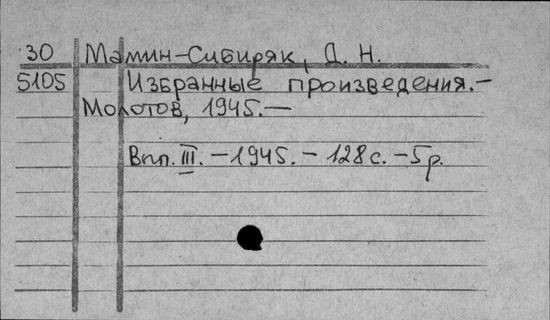 30 Мамин-Сибиряк, Д. Н.
5105 Избранные произведения.-
Молотов, 1945.—
Вып. III. – 1945. – 128 с. – 5 р.